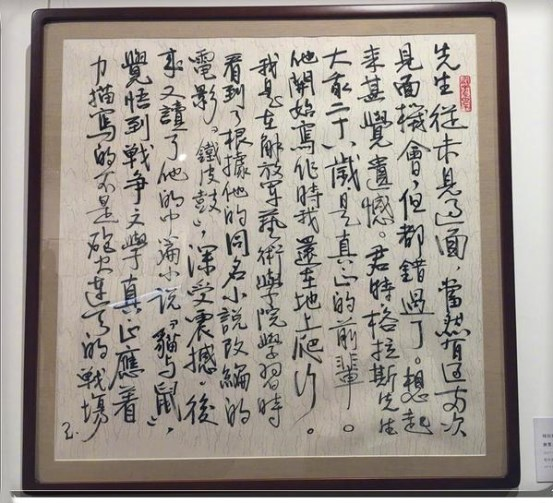 先生從未見过面，當然有过两次
見面機會，但都錯過了。想起
来甚覺遺憾。君特格拉斯先生
大我二十八歲是真正的前輩。
他開始寫作時我還在地上爬行。
我是在解放軍藝術學院學習時
看到了根據他的同名小說改編的
電影《鐵皮鼓》，深受震撼。後
来又讀了他的中篇小說《貓与鼠》，
覺悟到戰争文學真正應着
力描寫的不是砲火連天的戰場